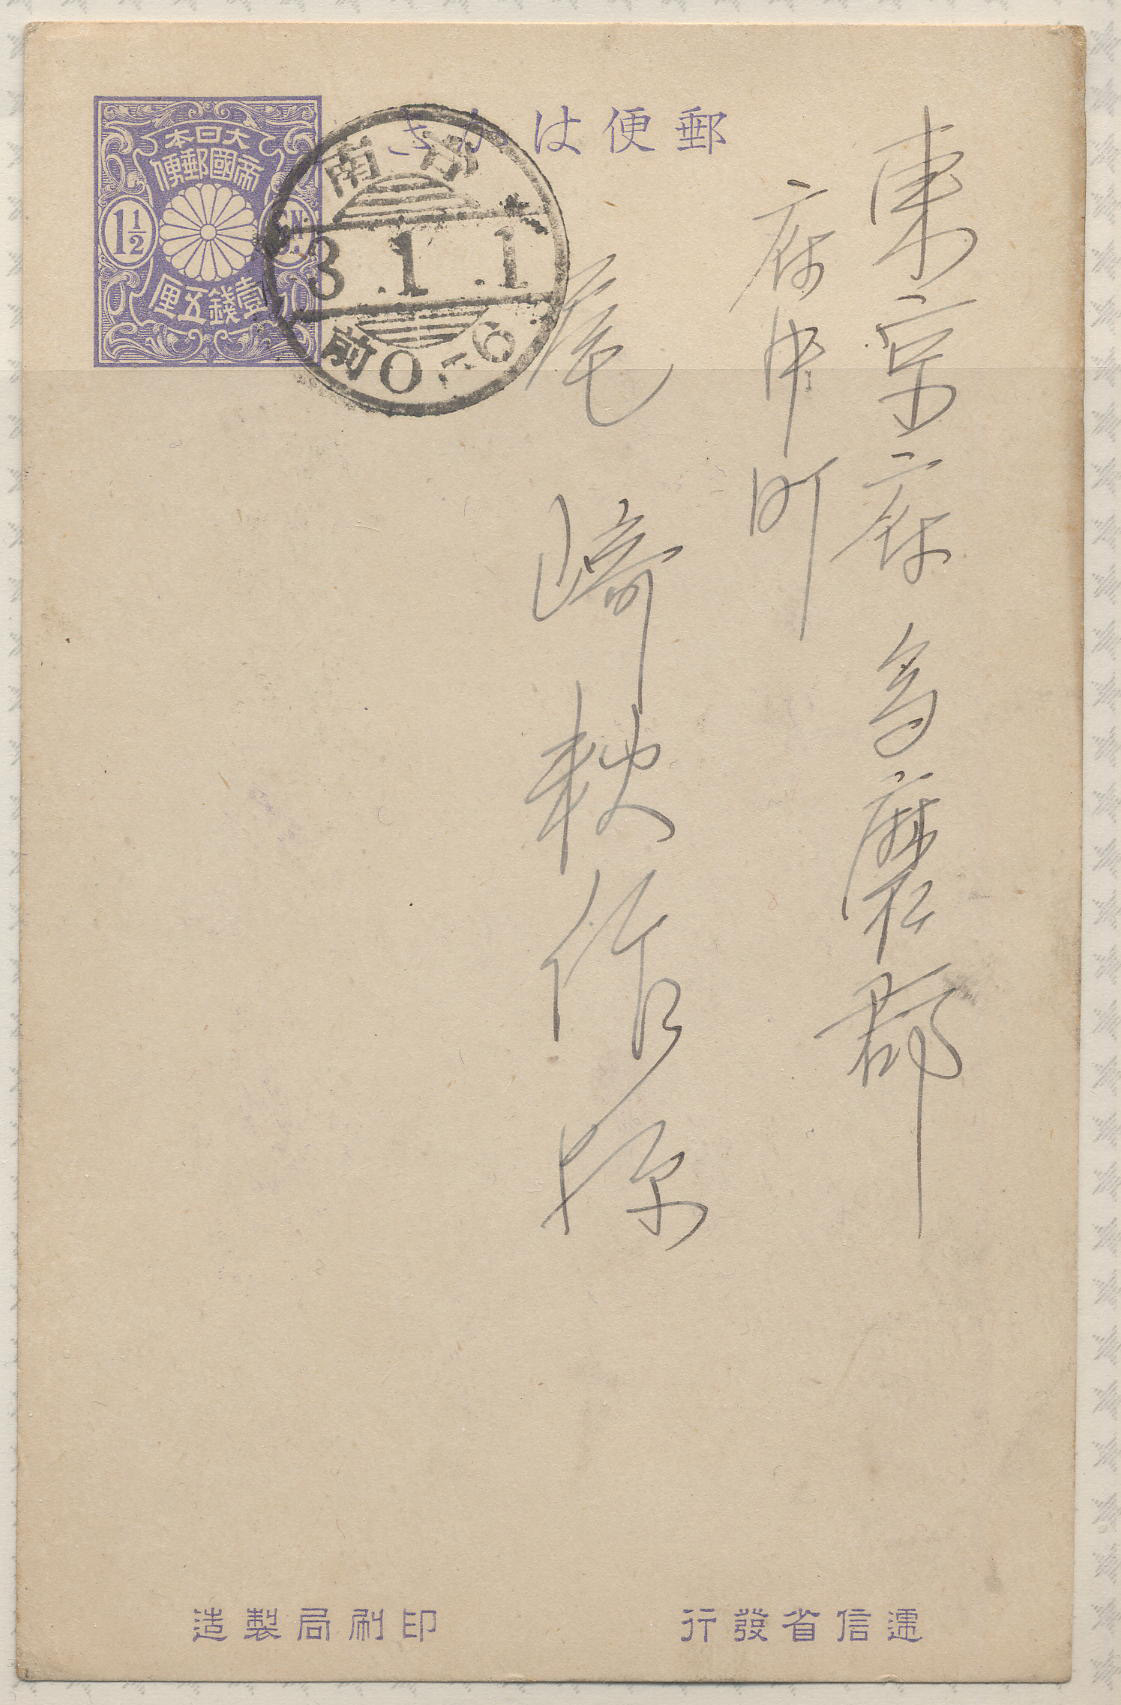 郵便はかき
大日本
帝國郵便
1½ SN.
壹錢五厘
3.1.1
前0-6
東京府多磨郡
府中町
尾崎耕作様
逓信省發行
印刷局製造